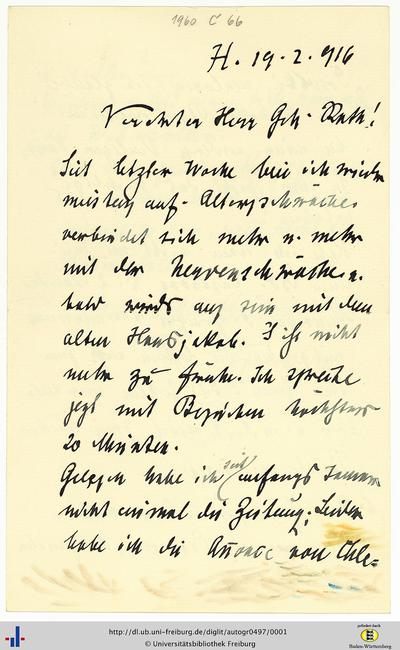 1960 C 66
H. 19. 2. 916
Verehrter Herr Geh. Rath!
Seit letzter Woche bin ich wieder
meistens auf. Altersschwäche
verbindet sich mehr u. mehr
mit der Nervenschwäche u.
bald wirds aus sein mit dem
alten Hansjakob. Is ist nicht
mehr zu frühe. Ich spreche
jezt mit Besuchen höchstens
20 Minuten.
Gelesen habe ich seit anfangs Januar
nicht einmal die Zeitung. Leider
habe ich die von
http://dl.ub.uni-freiburg.de/diglit/autogr0497/0001
© Universitätsbibliothek Freiburg
gefördert durch
Baden-Württemberg